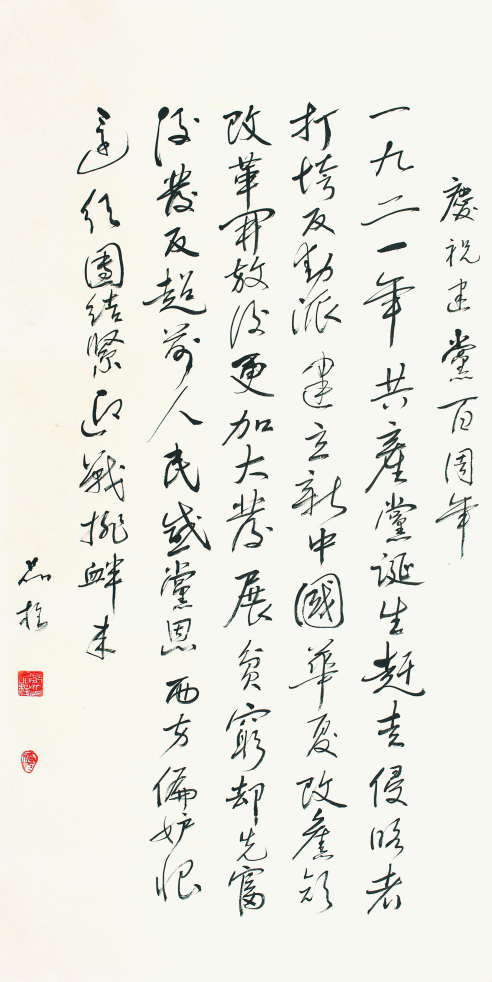 慶祝建黨百周年
一九二一年共產黨誕生趕走侵略者
打垮反動派建立新中國華夏改舊顏
改革開放後更加大發展貧窮却先富
後發反超前人民感黨恩西方偏妒恨
須團結緊迎戰挑衅来